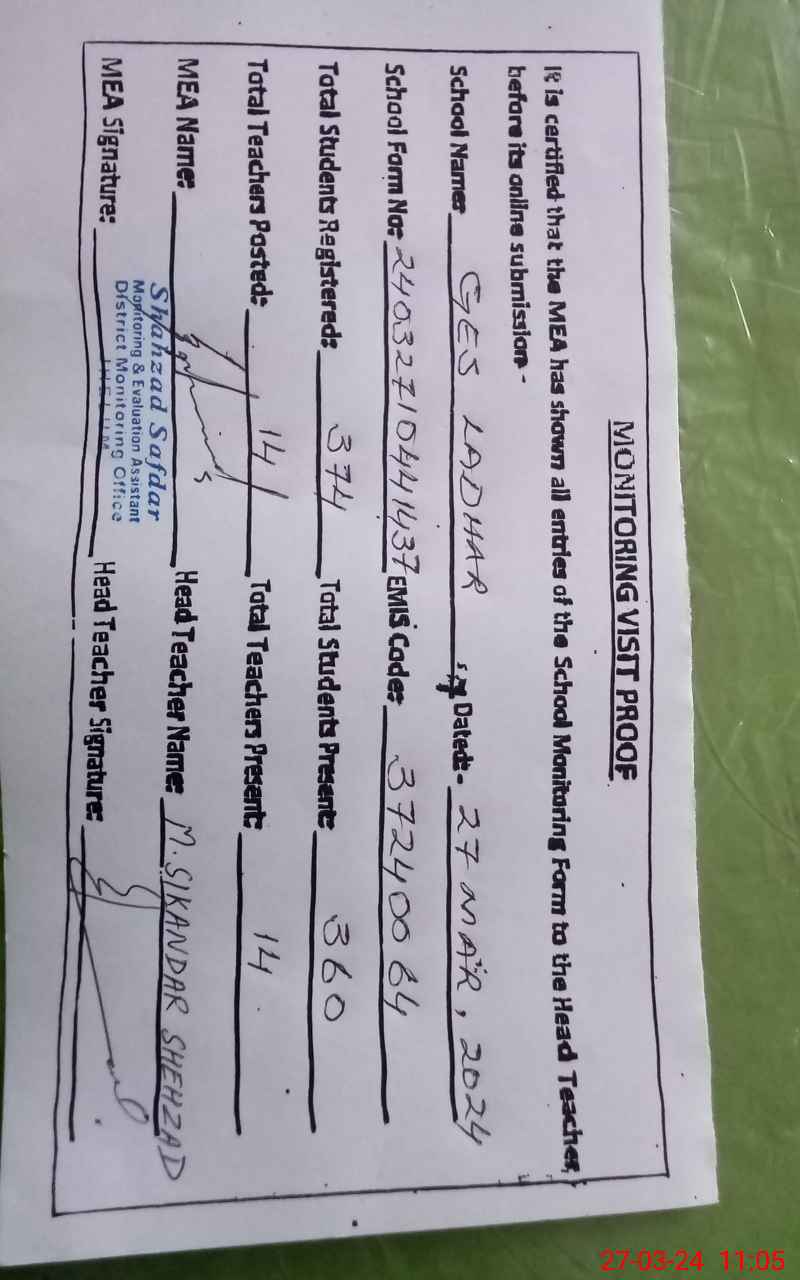 MONITORING VISIT PROOF
It is certified that the MEA has shown all entries of the School Monitoring Form to the Head Teacher,
before its online submission-
School Name: GES LADHAR Dated:- 27 MAR, 2024
School Form No: 24032710441437 EMIS Code: 37240064
Total Students Registered: 374 Total Students Present: 360
Total Teachers Posted: 14 Total Teachers Present: 14
MEA Name: Head Teacher Name: M. SIKANDAR SHEHZAD
Shahzad Safdar
Monitoring & Evaluation Assistant
District Monitoring Office
MEA Signature: Head Teacher Signature:
27-03-24 11:05